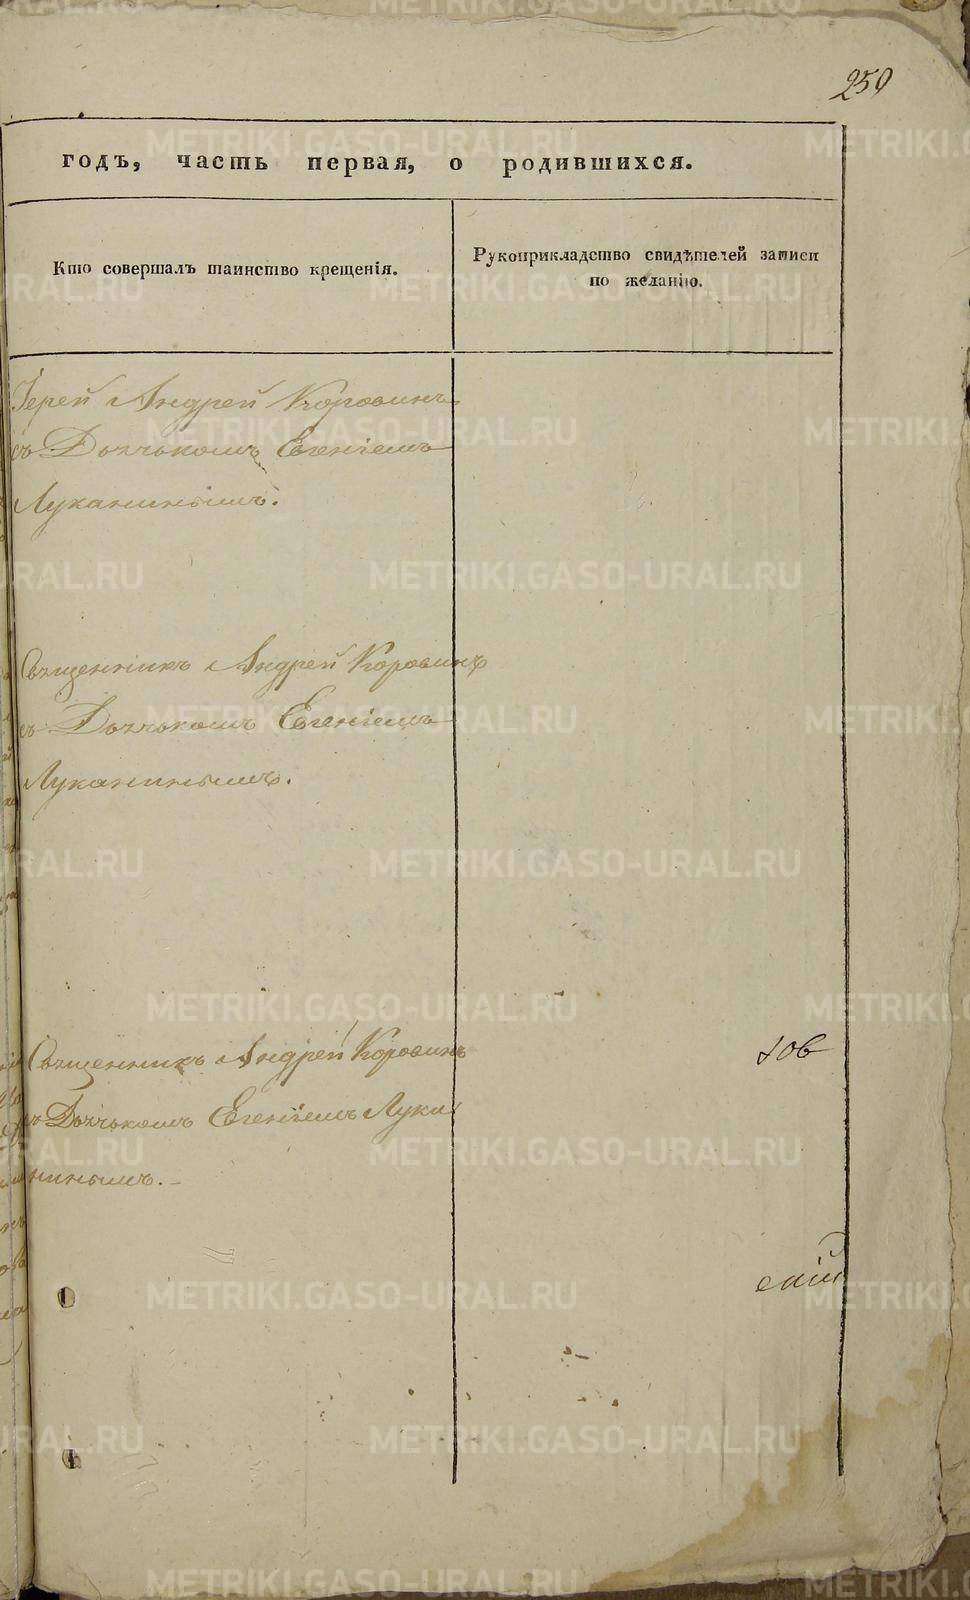 259
годъ, часть первая, о родившихся.
Кто совершалъ таинство крещенія.
Рукоприкладство свидѣтелей записи
по желанію.
Іерей Андрей Коровинъ
съ Дьячькомъ Евгеніемъ
Луканинымъ.
Священникъ Андрей Коровинъ
съ Дьячькомъ Евгеніемъ
Луканинымъ.
Священникъ Андрей Коровинъ
съ Дьячькомъ Евгеніемъ Лука
нинымъ.
ков
скій
METRIKI.GASO-URAL.RU